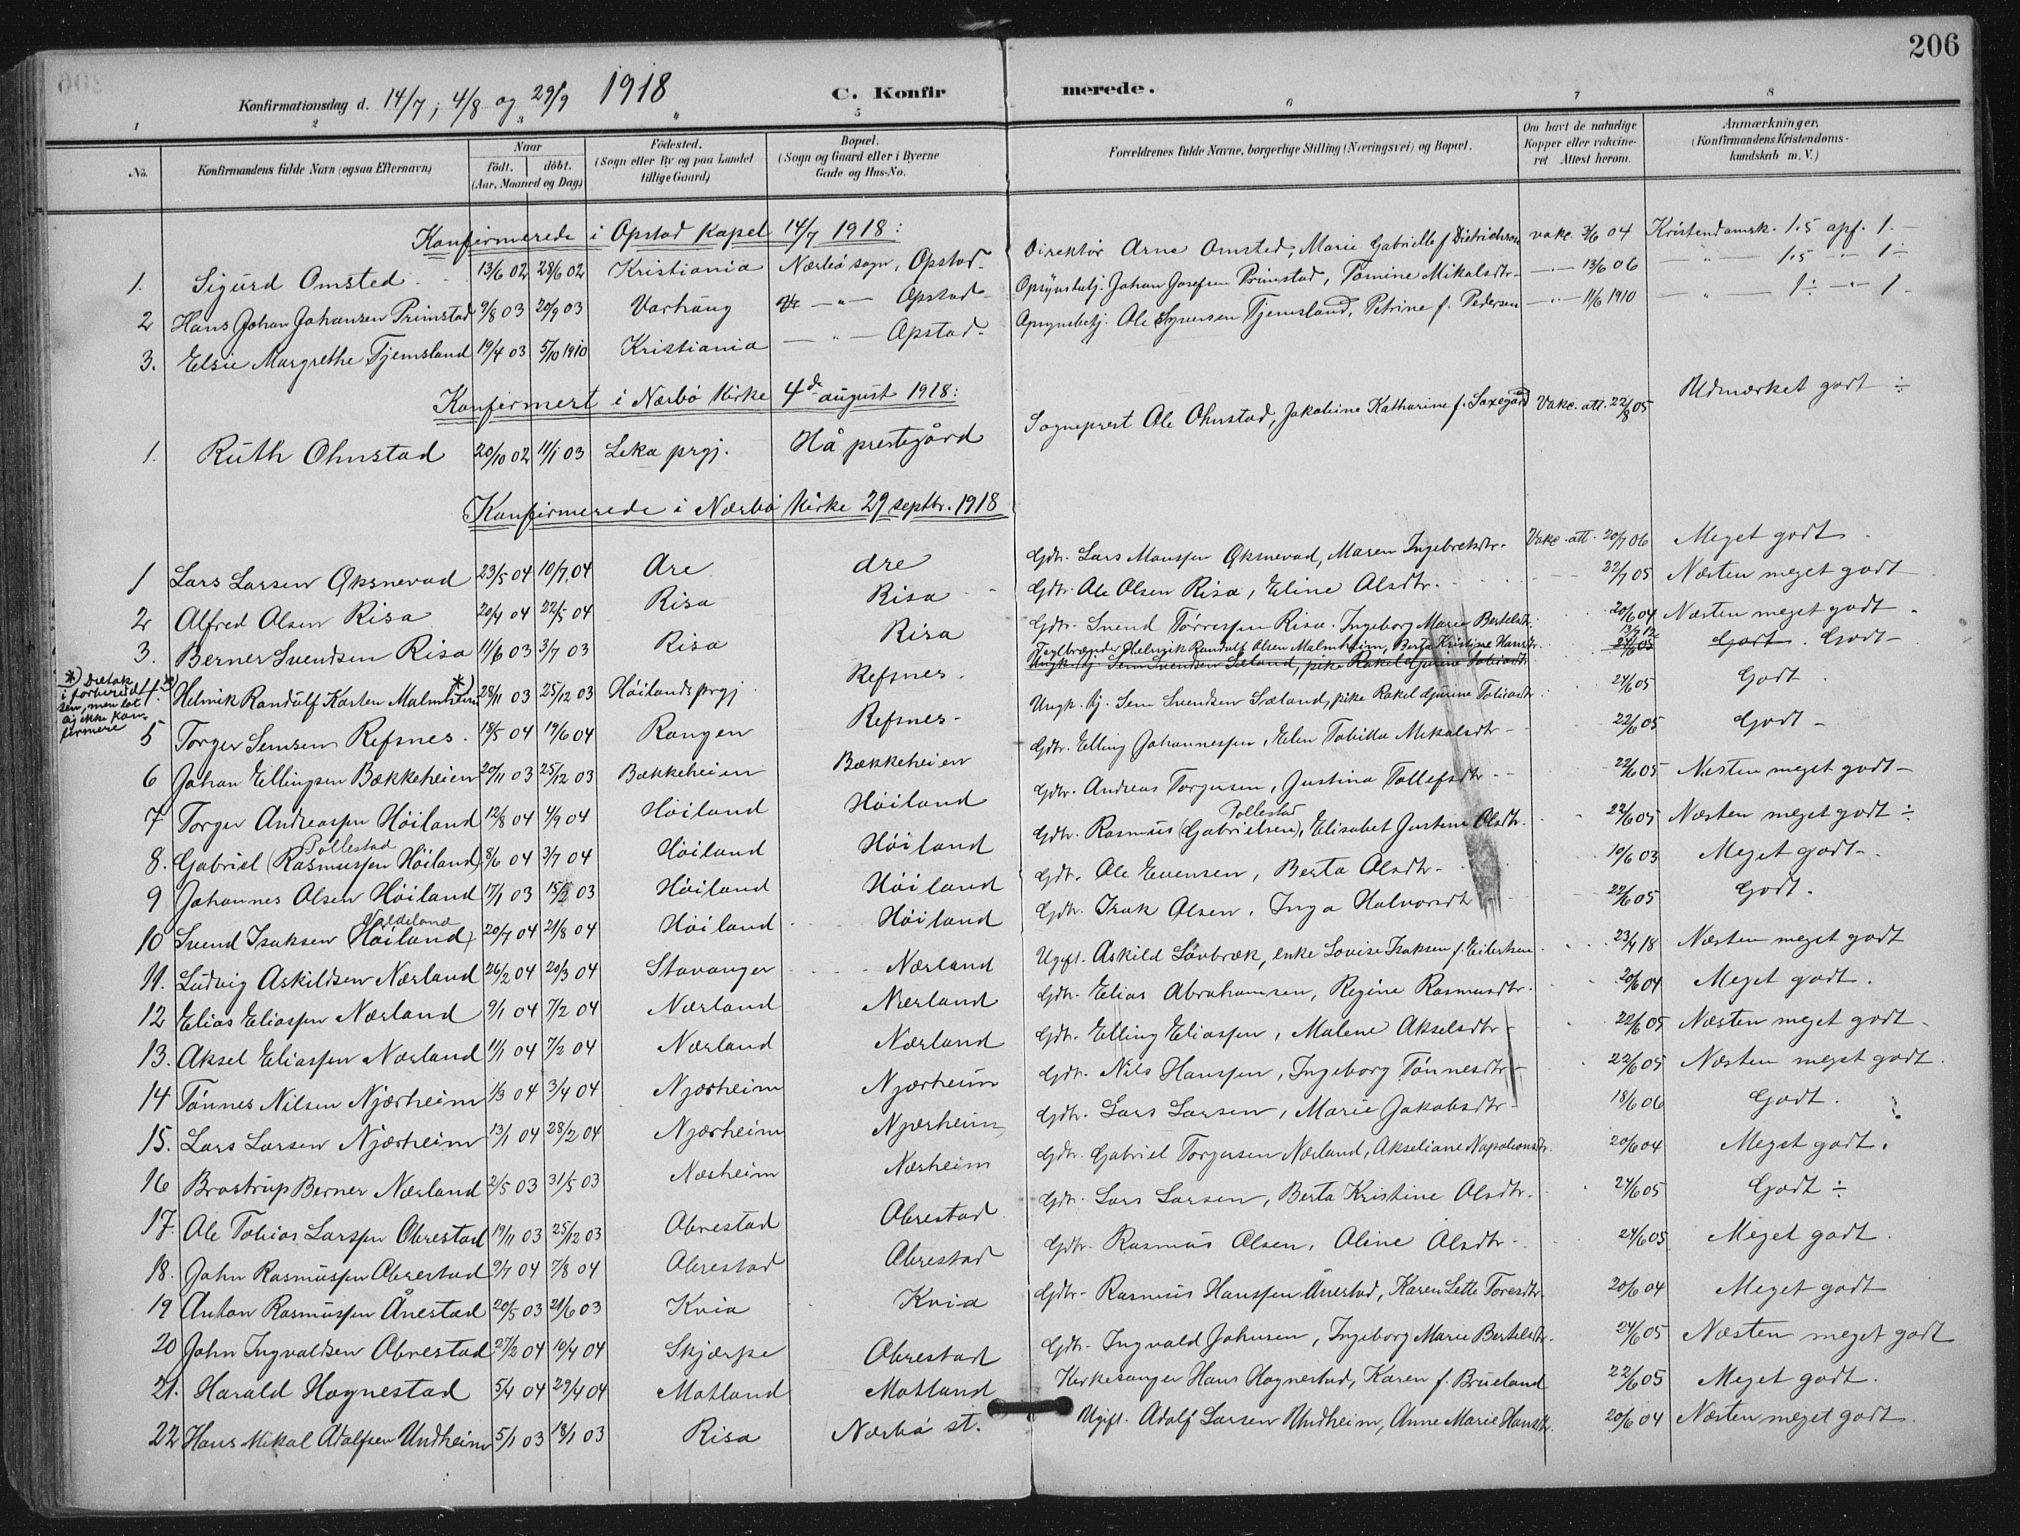 206
Konfirmationsdag d. 14/7; 4/8 og 29/9 1918 C. Konfirmerede.
1 2 3 4 5 6 7 8
No. Konfirmandens fulde Navn (ogsaa Efternavn) Naar født. døbt. (Aar, Maaned og Dag) Fødested. (Sogn eller By og paa Landet tillige Gaard) Bopæl. (Sogn og Gaard eller i Byerne Gade og Hus-No. Forældrenes fulde Navne, borgerlige Stilling (Næringsvei) og Bopæl. Om havt de naturlige Kopper eller vaccineret Attest herom. Anmærkninger. (Konfirmandens Kristendomskundskab m. V.)
Konfirmerede i Opstad Kapel 14/7 1918:
1. Sigurd Omsted 13/6 02 28/6 02 Kristiania Nærbø sogn, Opstad Direktør Arne Omsted, Marie Gabrielle f Dietrichson vakc. 3/6 04 Kristendomsk. 1.5 opf. 1.
2 Hans Johan Johansen Primstad 9/8 03 20/9 03 Varhaug — " — Opstad Opsynsbetj. Johan Josefsen Primstad, Tomine Mikalsdtr — " — 13/6 06 — " — 1.5 — " — 1 ÷
3. Elsie Margrethe Tjemsland 19/4 03 5/10 1910 Kristiania — " — Opstad Opsynsbetj. Ole Syversen Tjemsland, Petrine f. Pedersen — " — 11/6 1910 — " — 1 ÷ — " — 1
Konfirmert i Nærbø Kirke 4de august 1918:
1. Ruth Ohnstad 20/10 02 11/1 03 Leka prgj. Hå prestegård Sogneprest Ole Ohnstad, Jakobine Katharine f. Saxegård Vakc. att. 22/8 05 Udmærket godt ÷
Konfirmerede i Nærbø Kirke 29 septbr. 1918
1 Lars Larsen Øksnevad 23/5 04 10/7 04 Åre dre Gdtr. Lars Monssen Øksnevad, Maren Ingebretsdtr. Vakc. att. 20/7 06 Meget godt
2 Alfred Olsen Risa 20/4 04 22/5 04 Risa Risa Gdtr. Ole Olsen Risa, Eline Olsdtr. 22/7 05 Næsten meget godt
3. Berner Svendsen Risa 11/6 03 3/7 03 Risa Risa Gdtr. Svend Tørressen Risa. Ingeborg Marie Bertelsdtr. 20/6 04 Næsten meget godt
*) Deltok i forberedelsen, men lot sig ikke konfirmere
4. *) Helmik Randulf Karsten Malmheim *) 28/11 03 25/12 03 Høilands prgj Refsnes Teglbrænder Helmik Randulf Olsen Malmheim, Berta Kristine Hansdtr 24/6 05 Godt. Godt
Ungk. tj. Sem Svendsen Sæland, pike Rakel Gurine Tobiasdtr
5 Torger Semsen Refsnes. 18/5 04 19/6 04 Rangen Refsnes Ungk. tj. Sem Svendsen Sæland, pike Rakel Gurine Tobiasdtr. 24/6 05 Godt
6 Johan Ellingsen Bækkeheien 20/11 03 25/12 03 Bækkeheien Bækkeheien Gdtr. Elling Johannessen, Elen Tobitta Mikalsdtr 22/6 05 Godt
7 Torger Andreassen Høiland 12/8 04 4/9 04 Høiland Høiland Gdtr. Andreas Torgersen, Justina Tollefsdtr 22/6 05 Næsten meget godt
8. Gabriel (Rasmussen Høiland) Pollestad 8/6 04 3/7 04 Høiland Høiland Gdtr. Rasmus (Gabrielsen) Pollestad, Elisabet Justine Olsdtr. 22/6 05 Næsten meget godt ÷
9 Johannes Olsen Høiland 17/1 03 15/2 03 Høiland Høiland Gdtr. Ole Evensen, Berta Olsdtr. 10/6 03 Meget godt
10 Svend Isaksen (Høiland) Valdeland 20/7 04 21/8 04 Høiland Høiland Gdtr. Isak Olsen, Inga Halvorsdtr 22/6 05 Godt.
11. Ludvig Askildsen Nærland 26/2 04 20/3 04 Stavanger Nærland Ugift. Askild Løvbræk, enke Lovise Isaksen f. Eilertsen 23/4 18 Næsten meget godt
12 Elias Eliassen Nærland 9/1 04 7/2 04 Nærland Nærland Gdtr. Elias Abrahamsen, Regine Rasmusdtr. 20/6 04 Meget godt.
13. Aksel Eliassen Nærland 11/1 04 7/2 04 Nærland Nærland Gdtr. Elling Eliassen, Malene Akselsdtr 22/6 05 Næsten meget godt
14 Tønnes Nilsen Njærheim 1/3 04 3/4 04 Njærheim Njærheim Gdtr. Nils Hanssen, Ingeborg Tønnesdtr 22/6 05 Næsten meget godt
15. Lars Larsen Njærheim 13/1 04 28/2 04 Njærheim Njærheim Gdtr. Lars Larsen, Marie Jakobsdtr 18/6 06 Godt.
16 Brostrup Berner Nærland 2/5 03 31/5 03 Næsheim Nærheim Gdtr. Gabriel Torgersen Nærland, Akseliane Napoleonsdtr. 20/6 04 Meget godt.
17. Ole Tobias Larssen Obrestad 19/11 03 25/12 03 Obrestad Obrestad Gdtr. Lars Larsen, Berta Kristine Olsdtr. 24/6 05 Godt ÷
18. John Rasmussen Obrestad 9/7 04 7/8 04 Obrestad Obrestad Gdtr. Rasmus Olsen, Oline Olsdtr 24/6 05 Meget godt.
19 Anton Rasmussen Ånestad 20/5 03 21/6 03 Kvia Kvia Gdtr. Rasmus Hanssen Ånestad, Karen Lette Toresdtr. 20/6 04 Meget godt
20 John Ingvaldsen Obrestad 27/2 04 10/4 04 Skjærpe Obrestad Gdtr. Ingvald Johnsen, Ingeborg Marie Bertelsdtr. 24/6 05 Næsten meget godt
21. Harald Hognestad 5/4 04 29/4 04 Motland Motland Kirkesanger Hans Hognestad, Karen f. Brueland 22/6 05 Meget godt.
22 Hans Mikal Adolfsen Undheim 5/1 03 18/1 03 Risa Nærbø st. Ugift. Adolf Larsen Undheim, Anne Marie Hansdtr. 20/6 04 Næsten meget godt